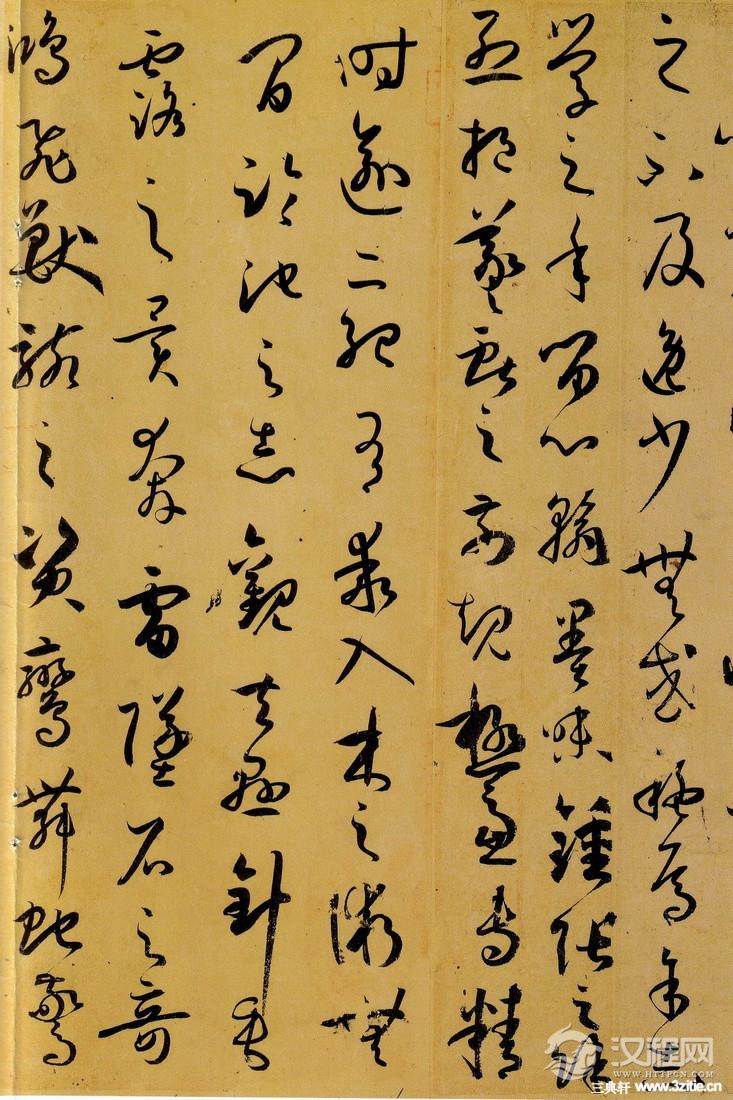 之不及逸少無或疑焉余志
學之年留心翰墨味鍾張之餘
烈挹羲獻之前規極慮專精
時逾二紀有乖入木之術無
間臨池之志觀夫懸針垂
露之異奔雷墜石之奇
鴻飛獸駭之資鸞舞蛇驚
汉程网
WWW.HTTPCN.COM
三典轩 www.3zitie.cn